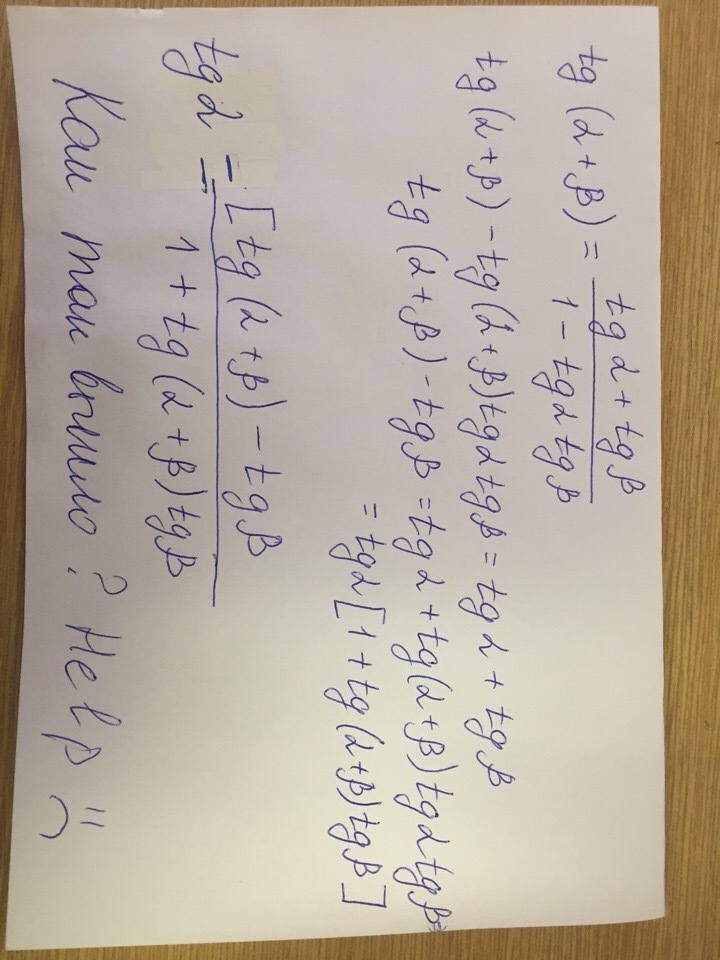 tg(α+β) = (tgα + tgβ)/(1 - tgα tgβ)
tg(α+β) - tg(α+β)tgα tgβ = tgα + tgβ
tg(α+β) - tgβ = tgα + tg(α+β)tgα tgβ =
= tgα[1 + tg(α+β)tgβ]
tgα = [tg(α+β) - tgβ/(1 + tg(α+β)tgβ)
Как так вышло? Help =)